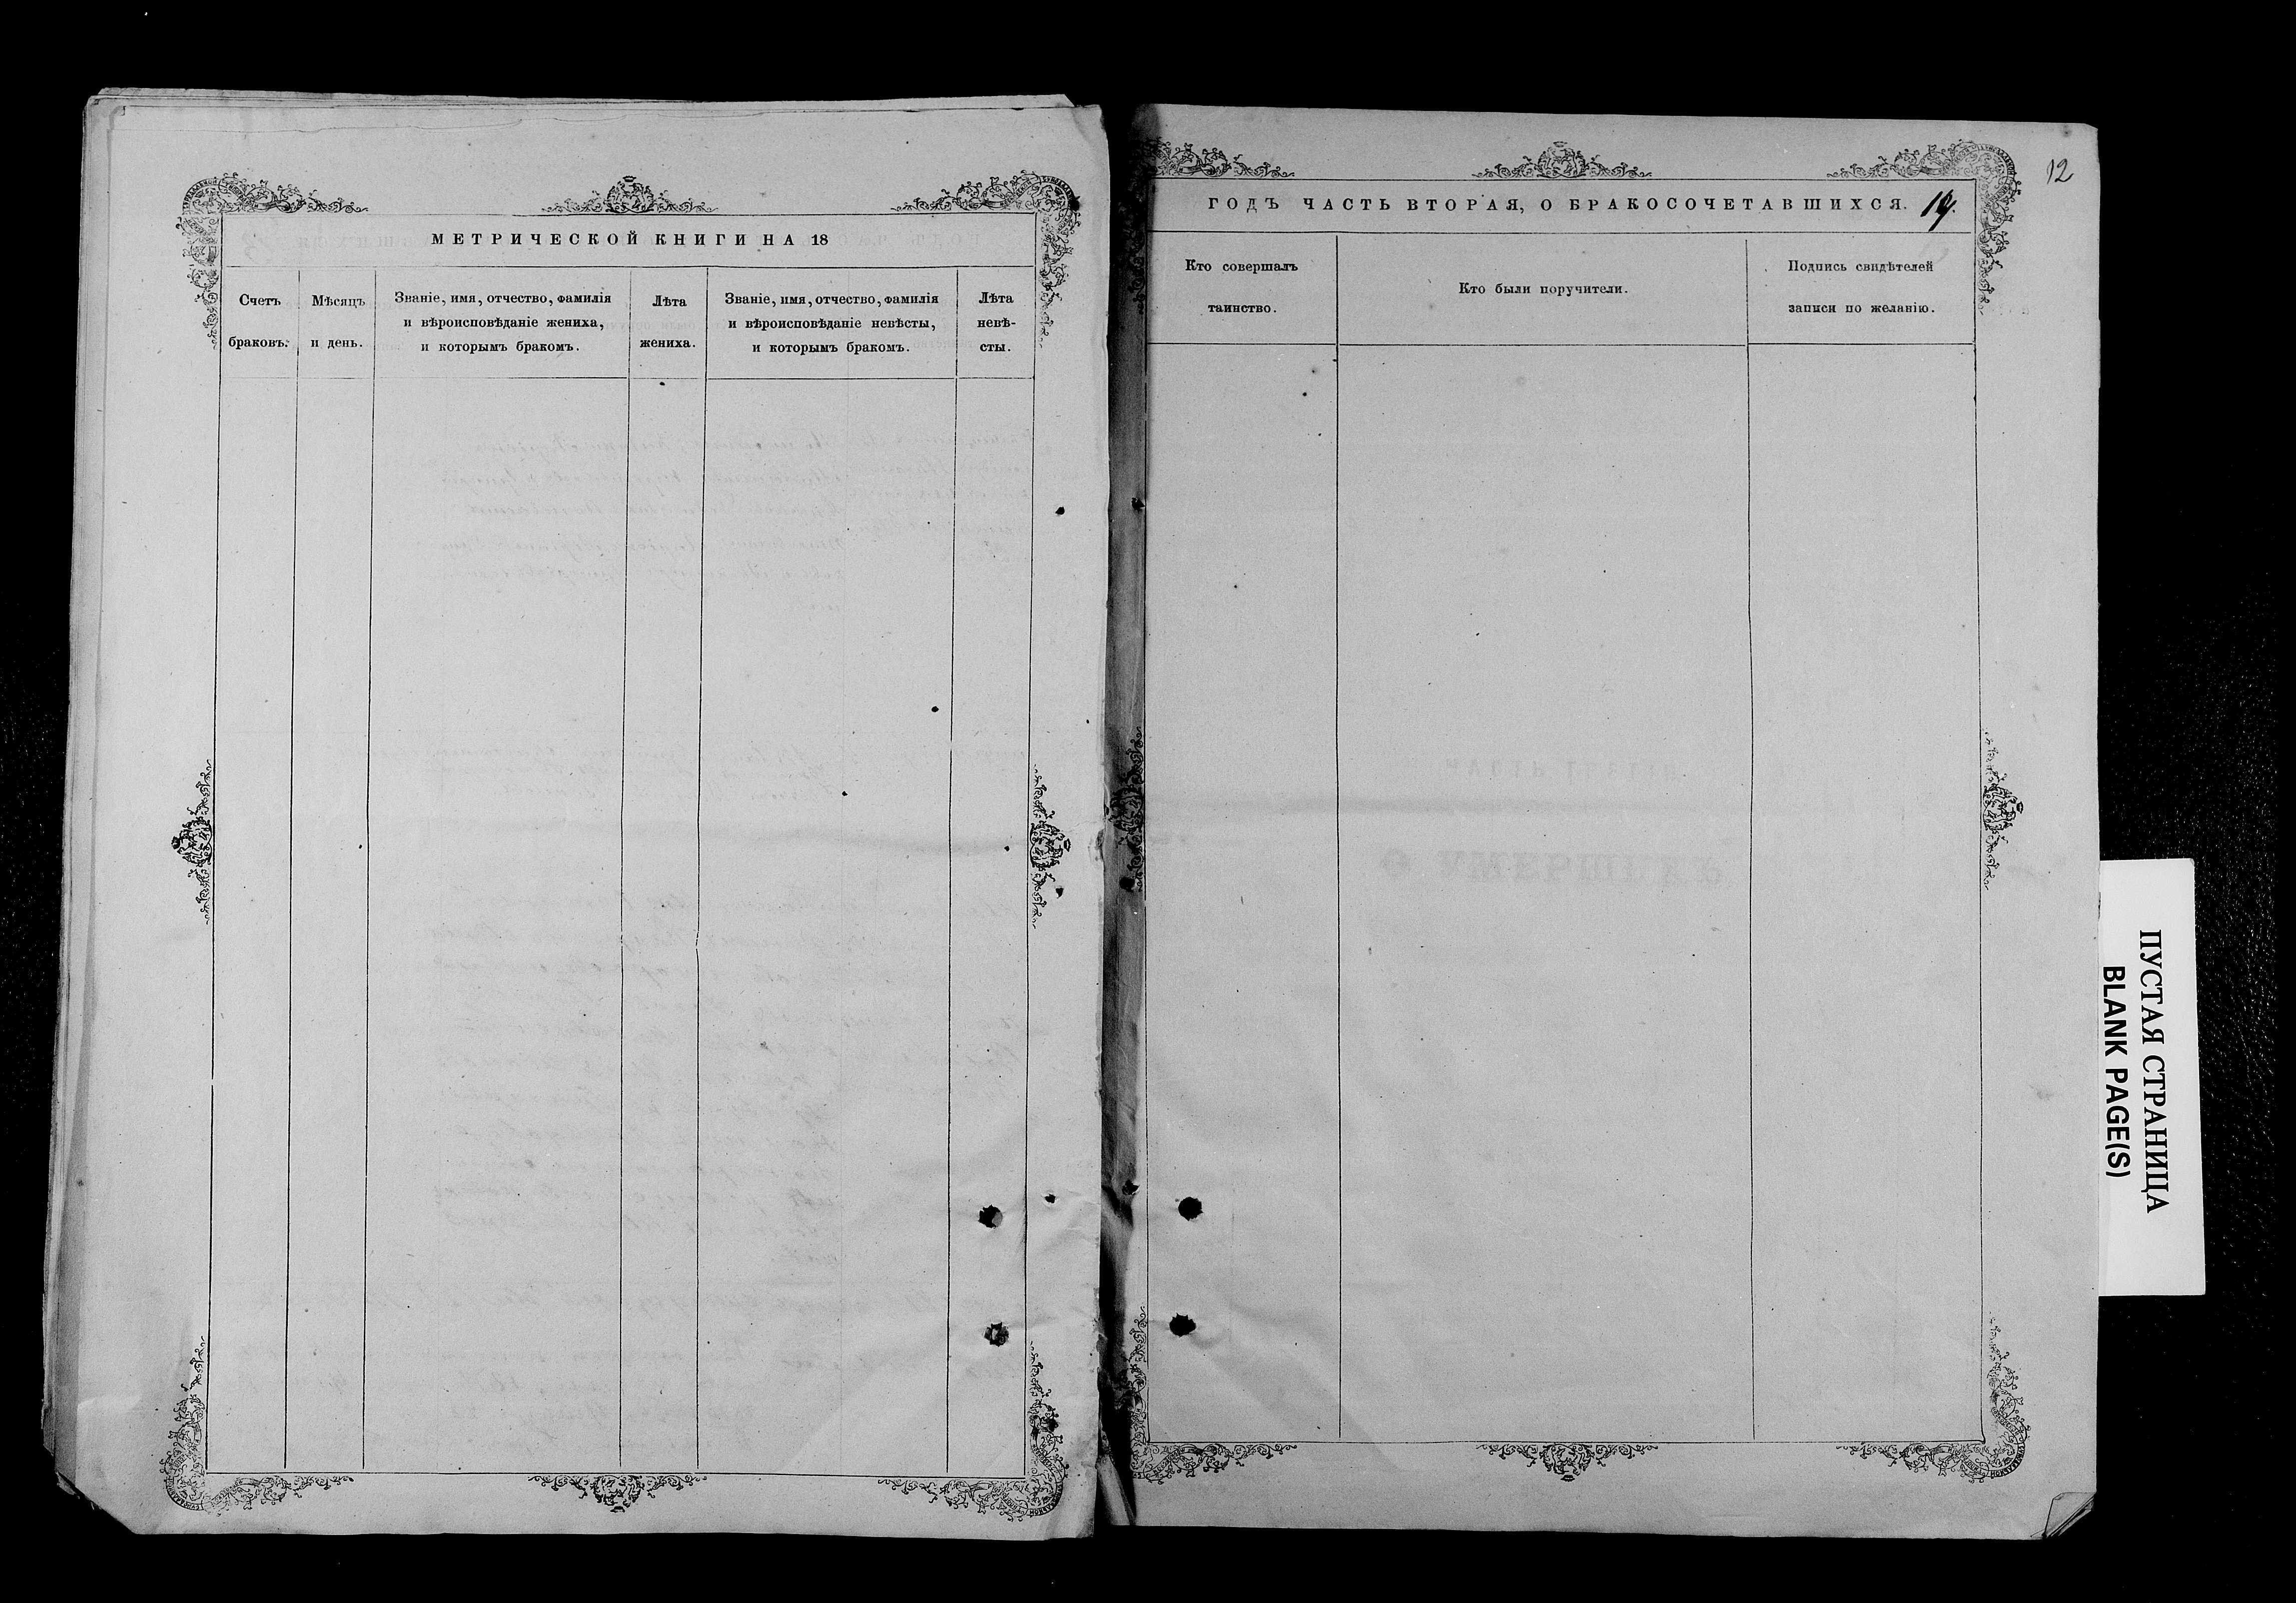 МЕТРИЧЕСКОЙ КНИГИ НА 18
Счетъ
браковъ.
Мѣсяцъ
и день.
Званіе, имя, отчество, фамилія
и вѣроисповѣданіе жениха,
и которымъ бракомъ.
Лѣта
жениха.
Званіе, имя, отчество, фамилія
и вѣроисповѣданіе невѣсты,
и которымъ бракомъ.
Лѣта
невѣ-
сты.
12
ГОДЪ ЧАСТЬ ВТОРАЯ, О БРАКОСОЧЕТАВШИХСЯ.
Кто совершалъ
таинство.
Кто были поручители.
Подпись свидѣтелей
записи по желанію.
ПУСТАЯ СТРАНИЦА
BLANK PAGE(S)